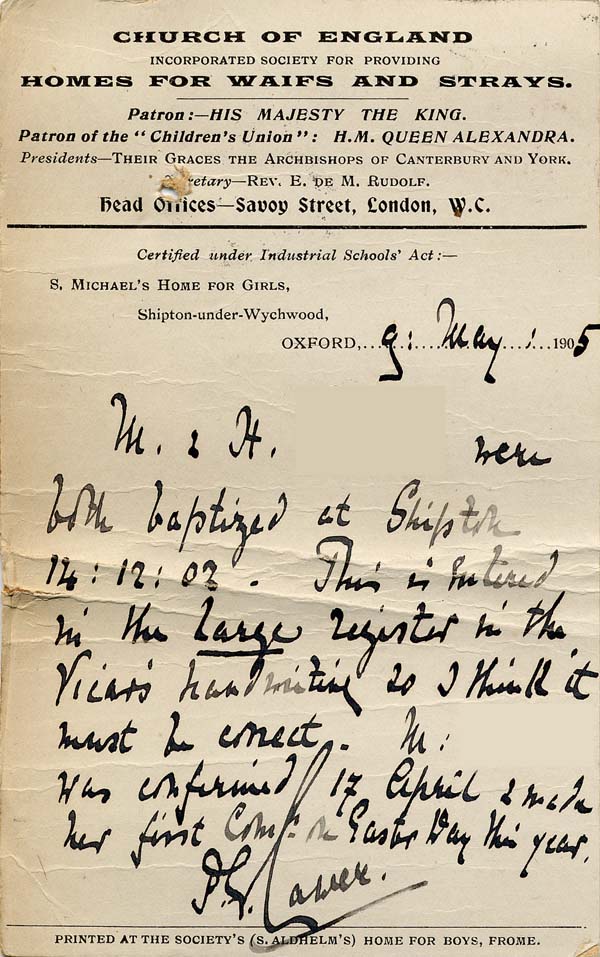 CHURCH OF ENGLAND
INCORPORATED SOCIETY FOR PROVIDING
HOMES FOR WAIFS AND STRAYS.
Patron:—HIS MAJESTY THE KING.
Patron of the "Children's Union": H.M. QUEEN ALEXANDRA.
Presidents—THEIR GRACES THE ARCHBISHOPS OF CANTERBURY AND YORK.
retary—REV. E. DE M. RUDOLF.
Head Offices—Savoy Street, London, W.C.
Certified under Industrial Schools' Act:—
S. MICHAEL'S HOME FOR GIRLS,
Shipton-under-Wychwood,
OXFORD,...9: May : 1905
M. & H. were
both baptized at Shipton
14:12:02. This is entered
in the large register in the
Vicar's handwriting so I think it
must be correct. M:
was confirmed 17 April & made
her first Com:n on Easter Day this year.
PRINTED AT THE SOCIETY'S (S. ALDHELM'S) HOME FOR BOYS, FROME.